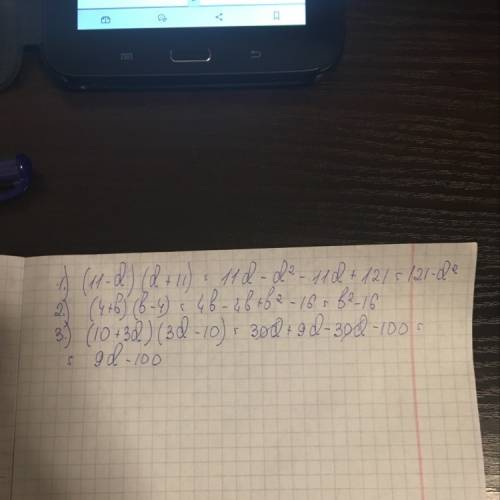 1.) (11-d)(d+11) = 11d - d² - 11d + 121 = 121-d²
2.) (4+b)(b-4) = 4b - 4b + b² - 16 = b² - 16
3.) (10+3d)(3d-10) = 30d + 9d - 30d - 100 =
= 9d - 100